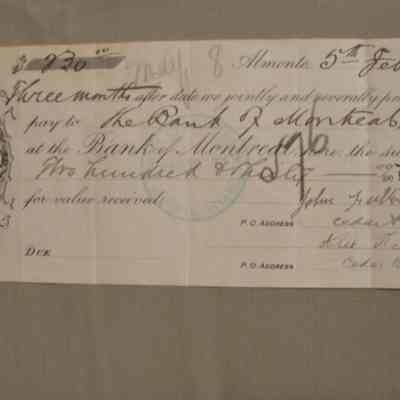 $ 230 00 May 8 Almonte, 5th Feb
Three months after date we jointly and severally
pay to The Bank of Montreal
at the Bank of Montreal, here, the
Two hundred & thirty 00
for value received. John
P.O. ADDRESS Cedar
DUE
P.O. ADDRESS Cedar